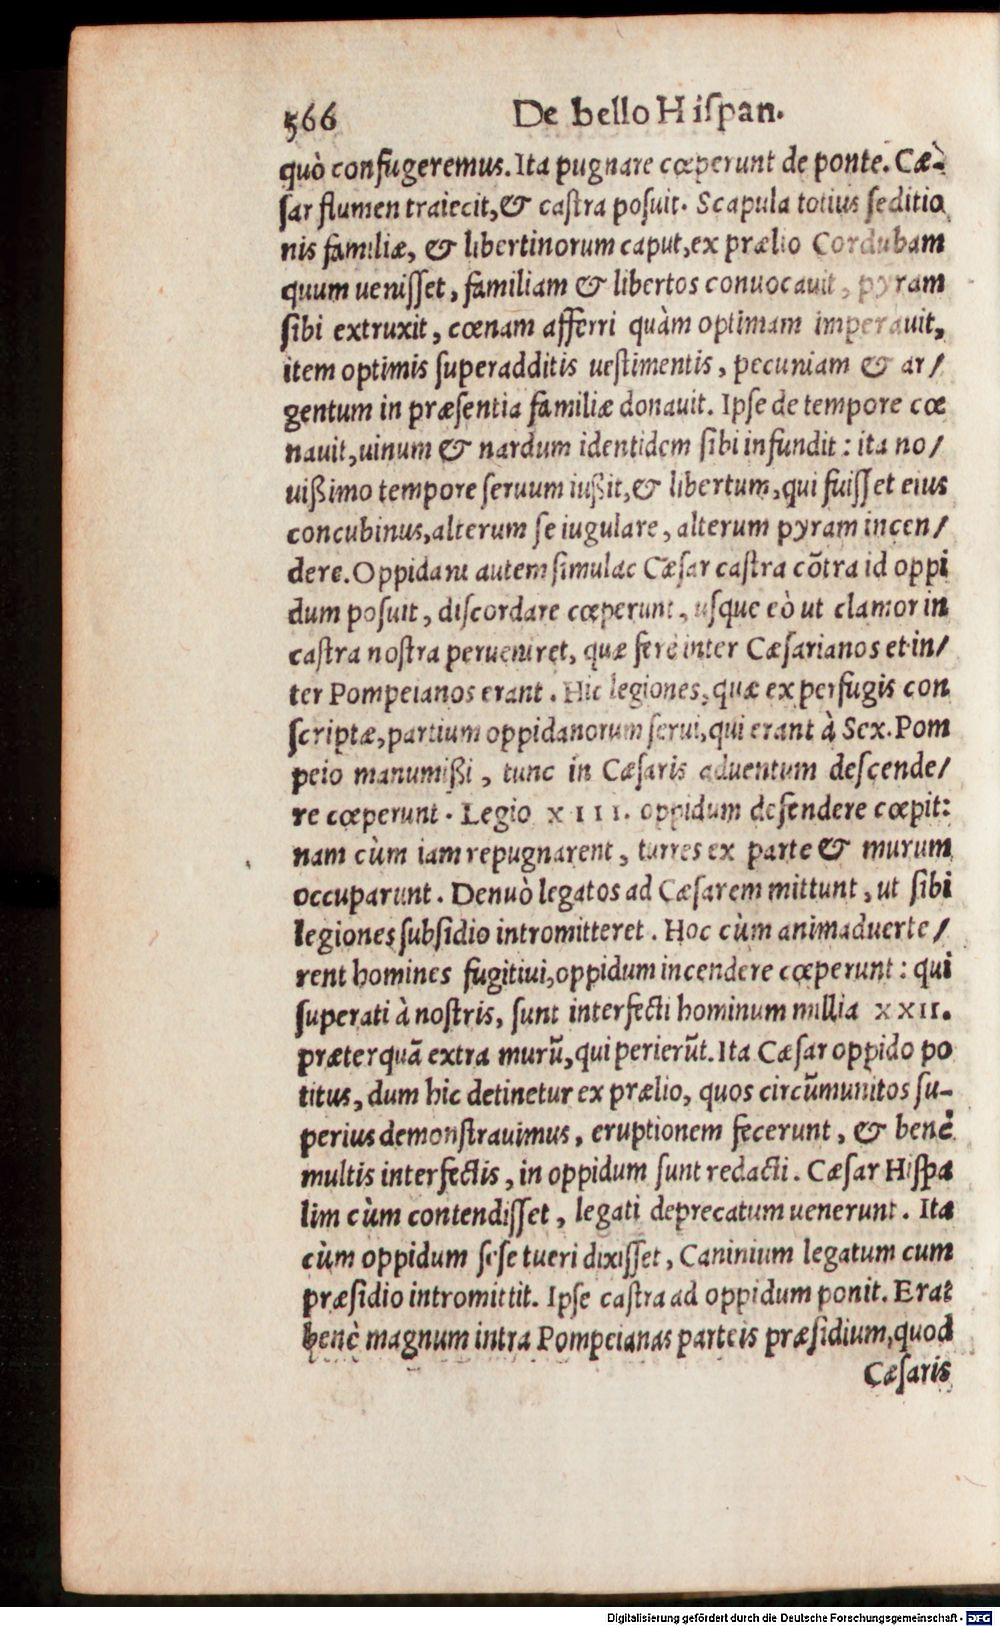 566 De bello Hiſpan.
quò confugeremus. Ita pugnare cœperunt de ponte. Cæ-
ſar flumen traiecit, & caſtra poſuit. Scapula totius ſeditio
nis familiæ, & libertinorum caput, ex prælio Cordubam
quum ueniſſet, familiam & libertos conuocauit, pyram
ſibi extruxit, cœnam afferri quàm optimam imperauit,
item optimis ſuperadditis ueſtimentis, pecuniam & ar/
gentum in præſentia familiæ donauit. Ipſe de tempore cœ
nauit, uinum & nardum identidem ſibi infundit: ita no/
uißimo tempore ſeruum iußit, & libertum, qui fuiſſet eius
concubinus, alterum ſe iugulare, alterum pyram incen/
dere. Oppidani autem ſimulac Cæſar caſtra cõtra id oppi
dum poſuit, diſcordare cœperunt, uſque eò ut clamor in
caſtra noſtra perueniret, quæ ferè inter Cæſarianos et in/
ter Pompeianos erant. Hic legiones, quæ ex perfugis con
ſcriptæ, partium oppidanorum ſerui, qui erant à Sex. Pom
peio manumißi, tunc in Cæſaris aduentum deſcende/
re cœperunt. Legio XIII. oppidum defendere cœpit:
nam cùm iam repugnarent, turres ex parte & murum
occuparunt. Denuò legatos ad Cæſarem mittunt, ut ſibi
legiones ſubſidio intromitteret. Hoc cùm animaduerte/
rent homines fugitiui, oppidum incendere cœperunt: qui
ſuperati à noſtris, ſunt interfecti hominum millia XXII.
præterquã extra murũ, qui perierũt. Ita Cæſar oppido po
titus, dum hic detinetur ex prælio, quos circũmunitos ſu-
perius demonſtrauimus, eruptionem fecerunt, & benè
multis interfectis, in oppidum ſunt redacti. Cæſar Hiſpa
lim cùm contendiſſet, legati deprecatum uenerunt. Ita
cùm oppidum ſeſe tueri dixiſſet, Caninium legatum cum
præſidio intromittit. Ipſe caſtra ad oppidum ponit. Erat
benè magnum intra Pompeianas parteis præſidium, quod
Cæſaris
Digitalisierung gefördert durch die Deutsche Forschungsgemeinschaft - DFG